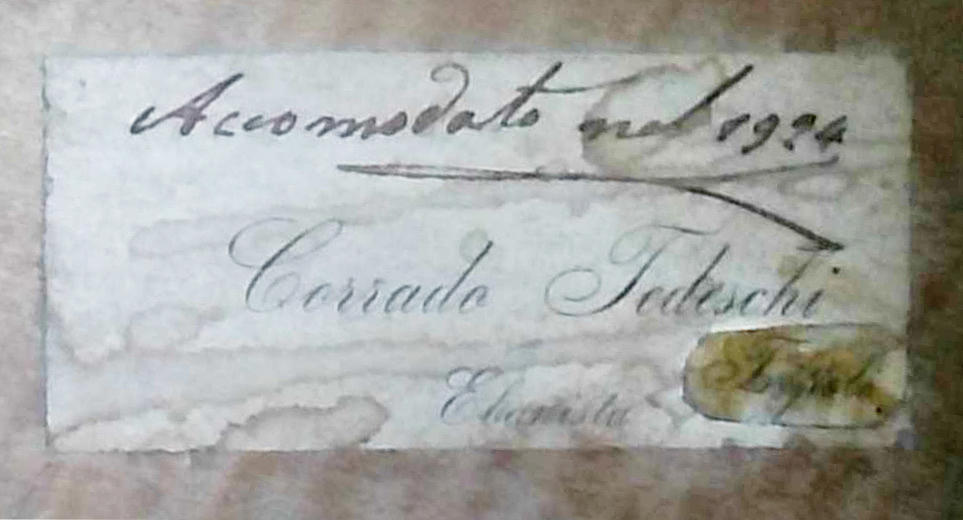 Accomodato nel 1924
Corrado Tedeschi
Ebanista